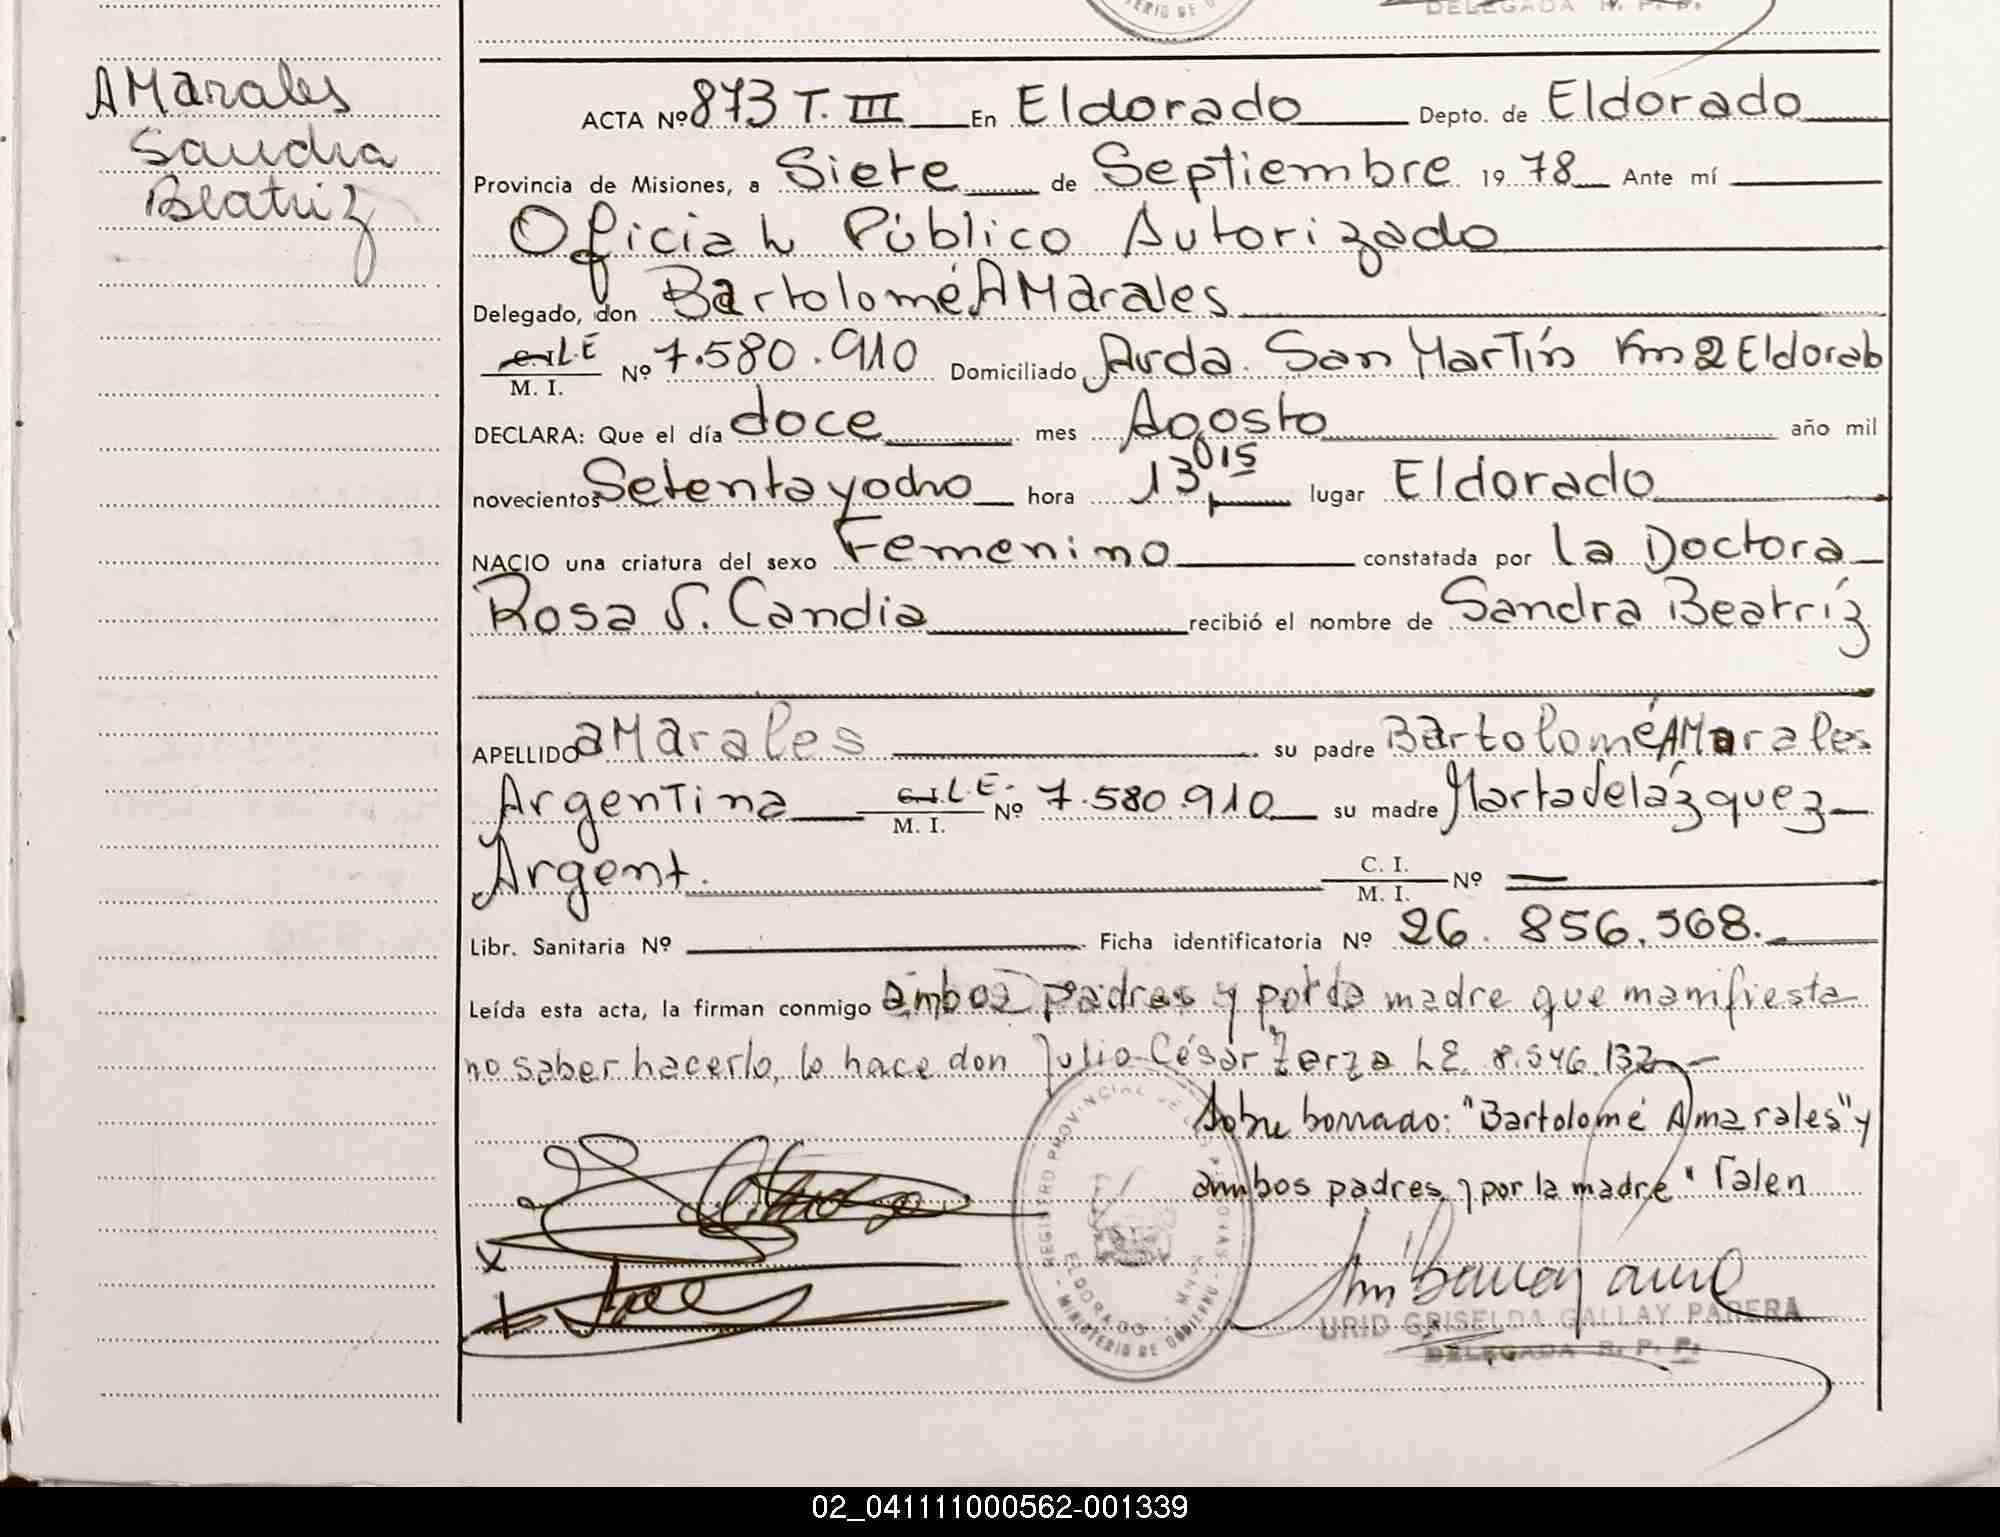 DELEGADA R. P. P.
AMarales
Sandra
Beatriz
ACTA Nº 873 T. III En Eldorado Depto. de Eldorado
Provincia de Misiones, a Siete de Septiembre 19 78 Ante mí
Oficial Público Autorizado
Delegado, don Bartolomé AMarales
C.I. L.E
M. I. Nº 7.580.910 Domiciliado Avda. San Martín Km 2 Eldorado
DECLARA: Que el día doce mes Agosto año mil
novecientos Setenta y ocho hora 13,015 lugar Eldorado
NACIO una criatura del sexo Femenino constatada por la Doctora
Rosa S. Candia recibió el nombre de Sandra Beatríz
APELLIDO aMarales su padre Bartolomé AMarales
Argentina C.I. L.E. M. I. Nº 7.580.910 su madre Marta Velázquez
Argent. C. I. M. I. Nº —
Libr. Sanitaria Nº Ficha identificatoria Nº 26.856.568.
Leída esta acta, la firman conmigo ambos padres y por la madre que manifiesta
no saber hacerlo, lo hace don Julio César Zerza L.E. 8.546.132
Sobre borrado: "Bartolomé Amarales" y
ambos padres, y por la madre" Valen
REGISTRO PROVINCIAL DE LAS PERSONAS
ELDORADO - MNES
MINISTERIO DE GOBIERNO
URID GRISELDA GALLAY PARERA
DELEGADA R. P. P.
02_041111000562-001339